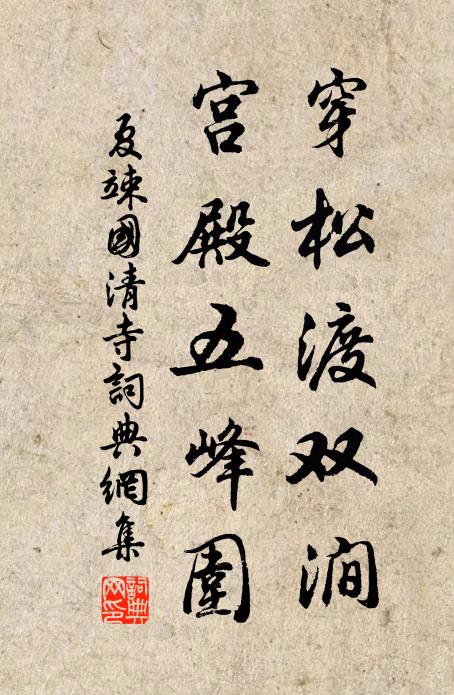 穿松渡双澗
宫殿五峰圍
夏竦國清寺詞典網集
詞典网印